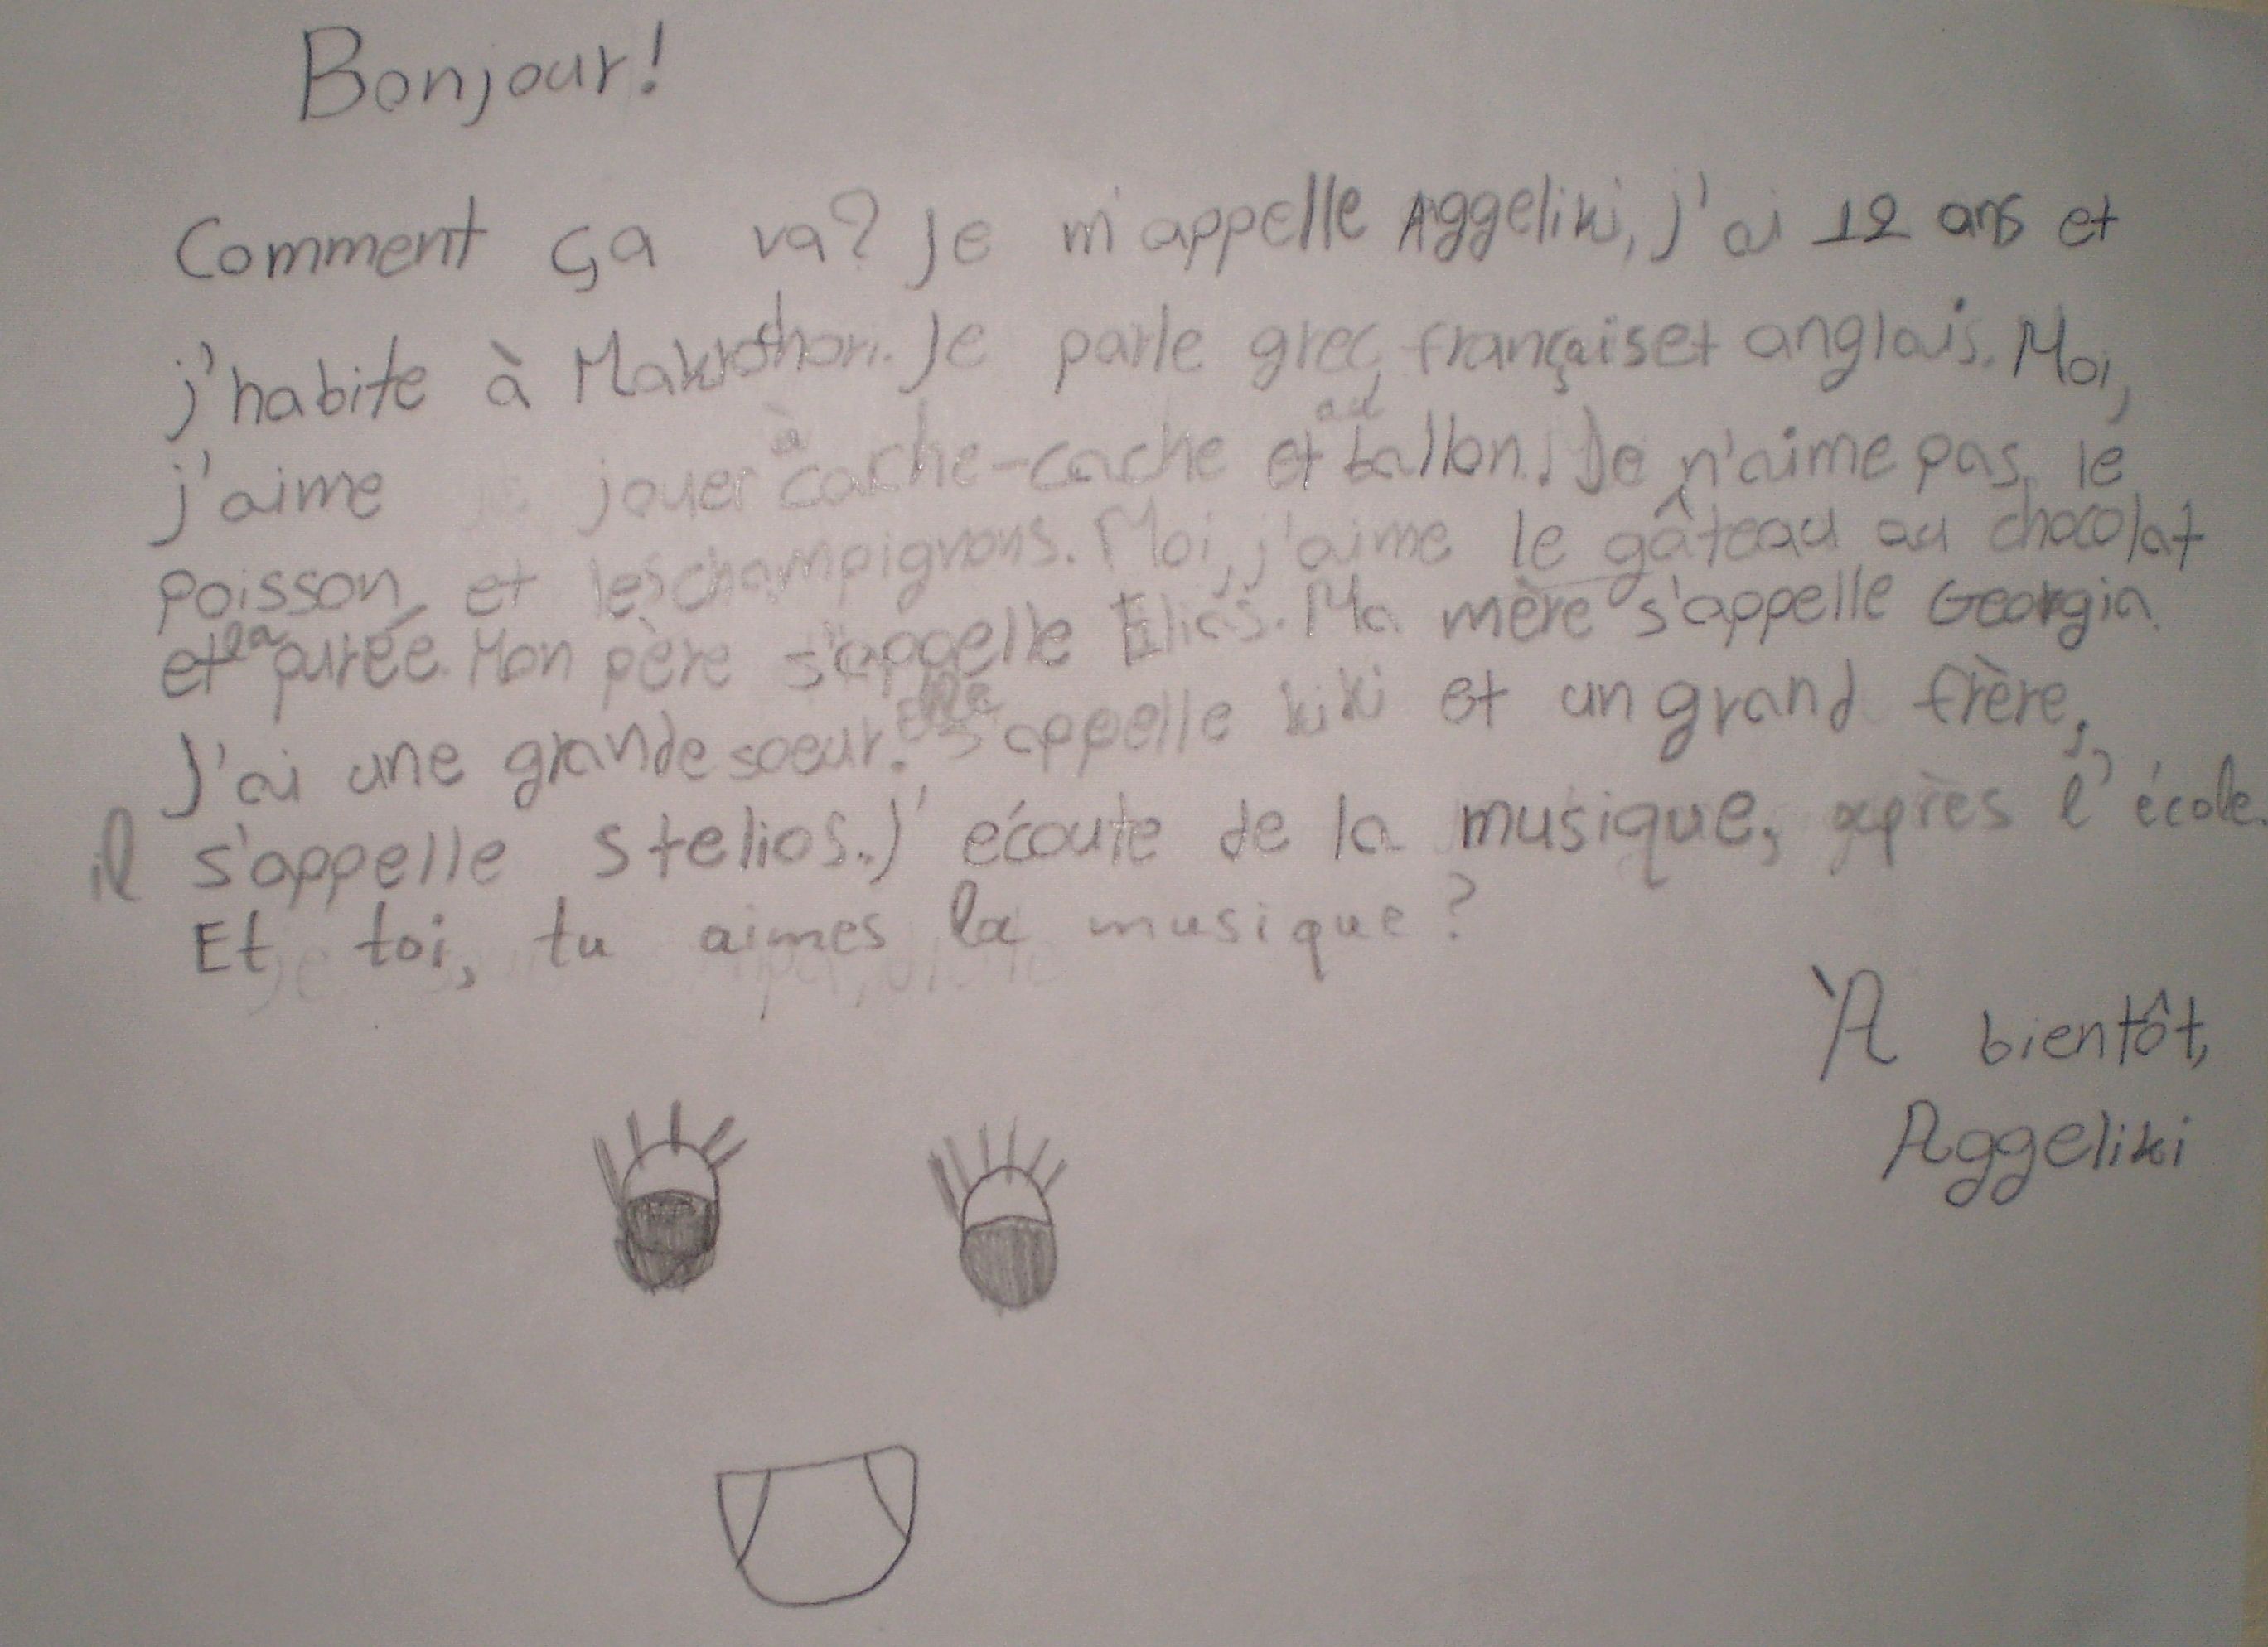 Bonjour!
Comment ça va? Je m'appelle Aggeliki, j'ai 12 ans et
j'habite à Makrohori. Je parle grec, français et anglais. Moi,
j'aime jouer à cache-cache et au ballon. Je n'aime pas le
poisson et les champignons. Moi, j'aime le gâteau au chocolat
et la purée. Mon père s'appelle Elias. Ma mère s'appelle Georgia.
J'ai une grande soeur. Elle s'appelle kiki et un grand frère,
il s'appelle Stelios. J'écoute de la musique, après l'école.
Et toi, tu aimes la musique?
À bientôt,
Aggeliki